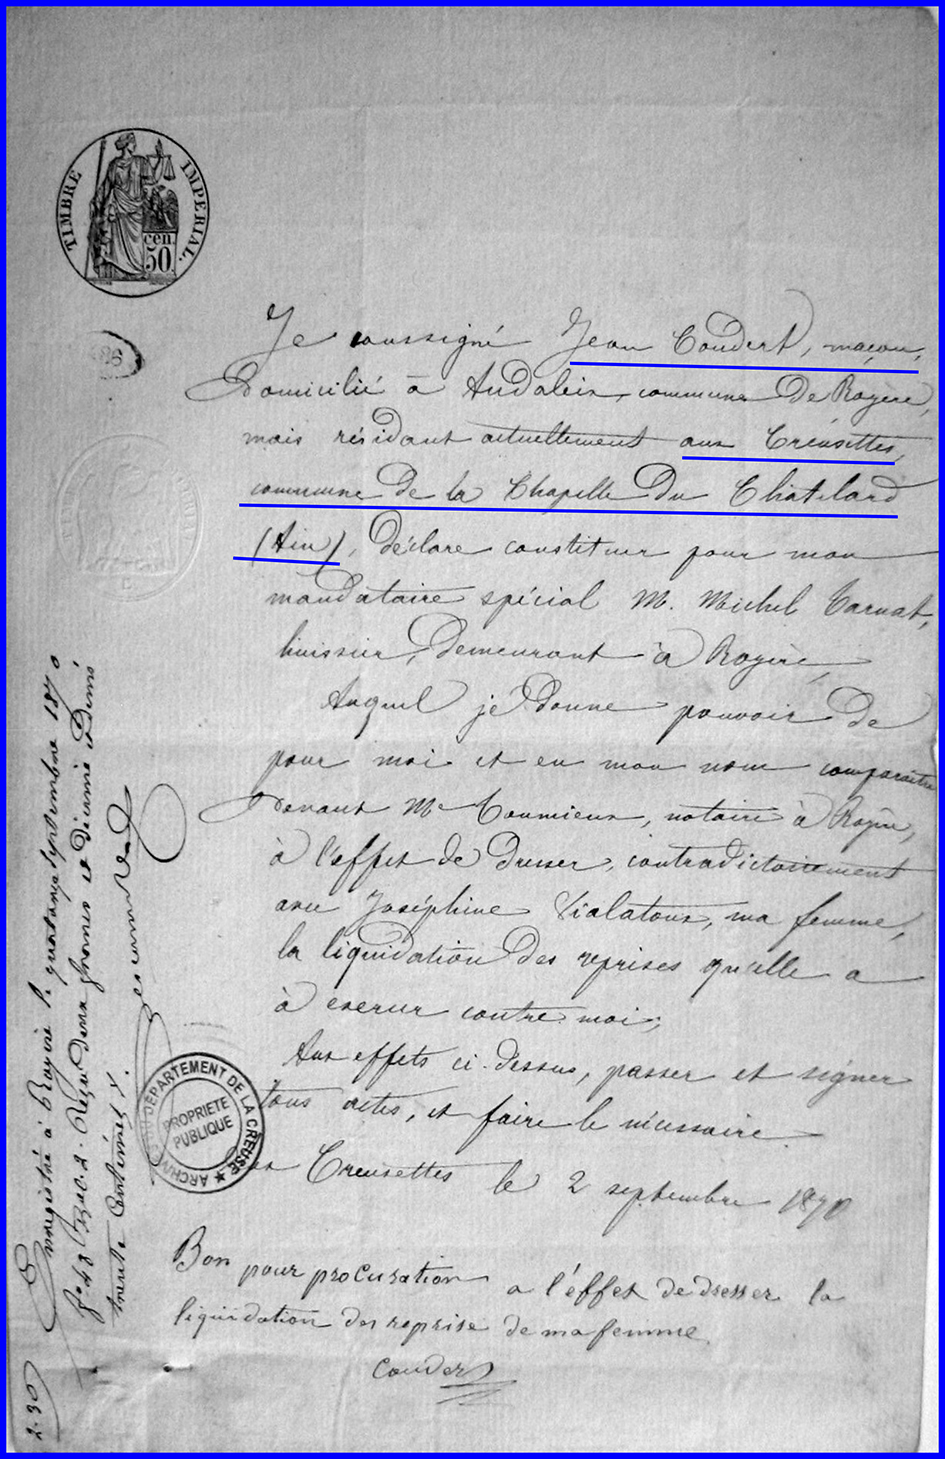 TIMBRE IMPÉRIAL.
cen. 50
Je soussigné Jean Coudert, maçon,
domicilié à Andaleix, commune de Royère,
mais résidant actuellement aux Creusettes,
commune de la Chapelle du Chatelard
(Ain), déclare constituer pour mon
mandataire spécial M. Michel
huissier, demeurant à Royère,
Auquel je donne pouvoir de
pour moi et en mon nom comparaitre
devant Me Coumieux, notaire à Royère,
à l'effet de dresser, contradictoirement
avec Joséphine Vialatoux, ma femme,
la liquidation des reprises qu'elle a
à exercer contre moi;
Aux effets ci-dessus, passer et signer
tous actes, et faire le nécessaire.
Aux Creusettes le 2 septembre 1870
Bon pour procuration a l'effet de dresser la
liquidation des reprise de ma femme
Couder
Enregistré à Royère le quatorze septembre 1870
fo 48 Reçu deux francs et décime et demi
trente centimes
2.30
ARCHIVES DU DÉPARTEMENT DE LA CREUSE ★
PROPRIÉTÉ
PUBLIQUE